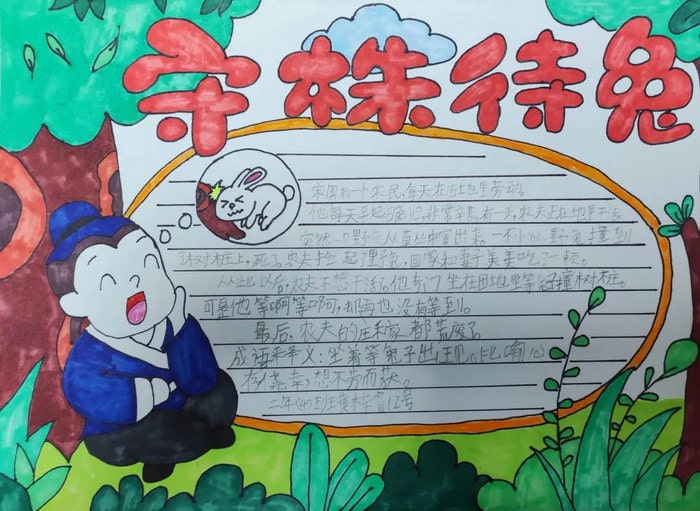 守株待兔
宋国有一个农民,每天在田地里劳动。
他每天早起晚归,非常辛苦,有一天,农夫正在地里干活,
突然一只野兔从草丛中窜出来。一不小心野兔撞到
树桩上,死了。农夫捡起野兔,回家和妻子美美吃了一顿。
从此以后,农夫不想干活了。他专门坐在田地里等兔子撞树桩。
可是他等啊等啊,却再也没有等到。
最后,农夫的庄稼都荒废了。
成语释义:坐着等兔子出现。比喻心
存侥幸,想不劳而获。
二年(4)班 12号